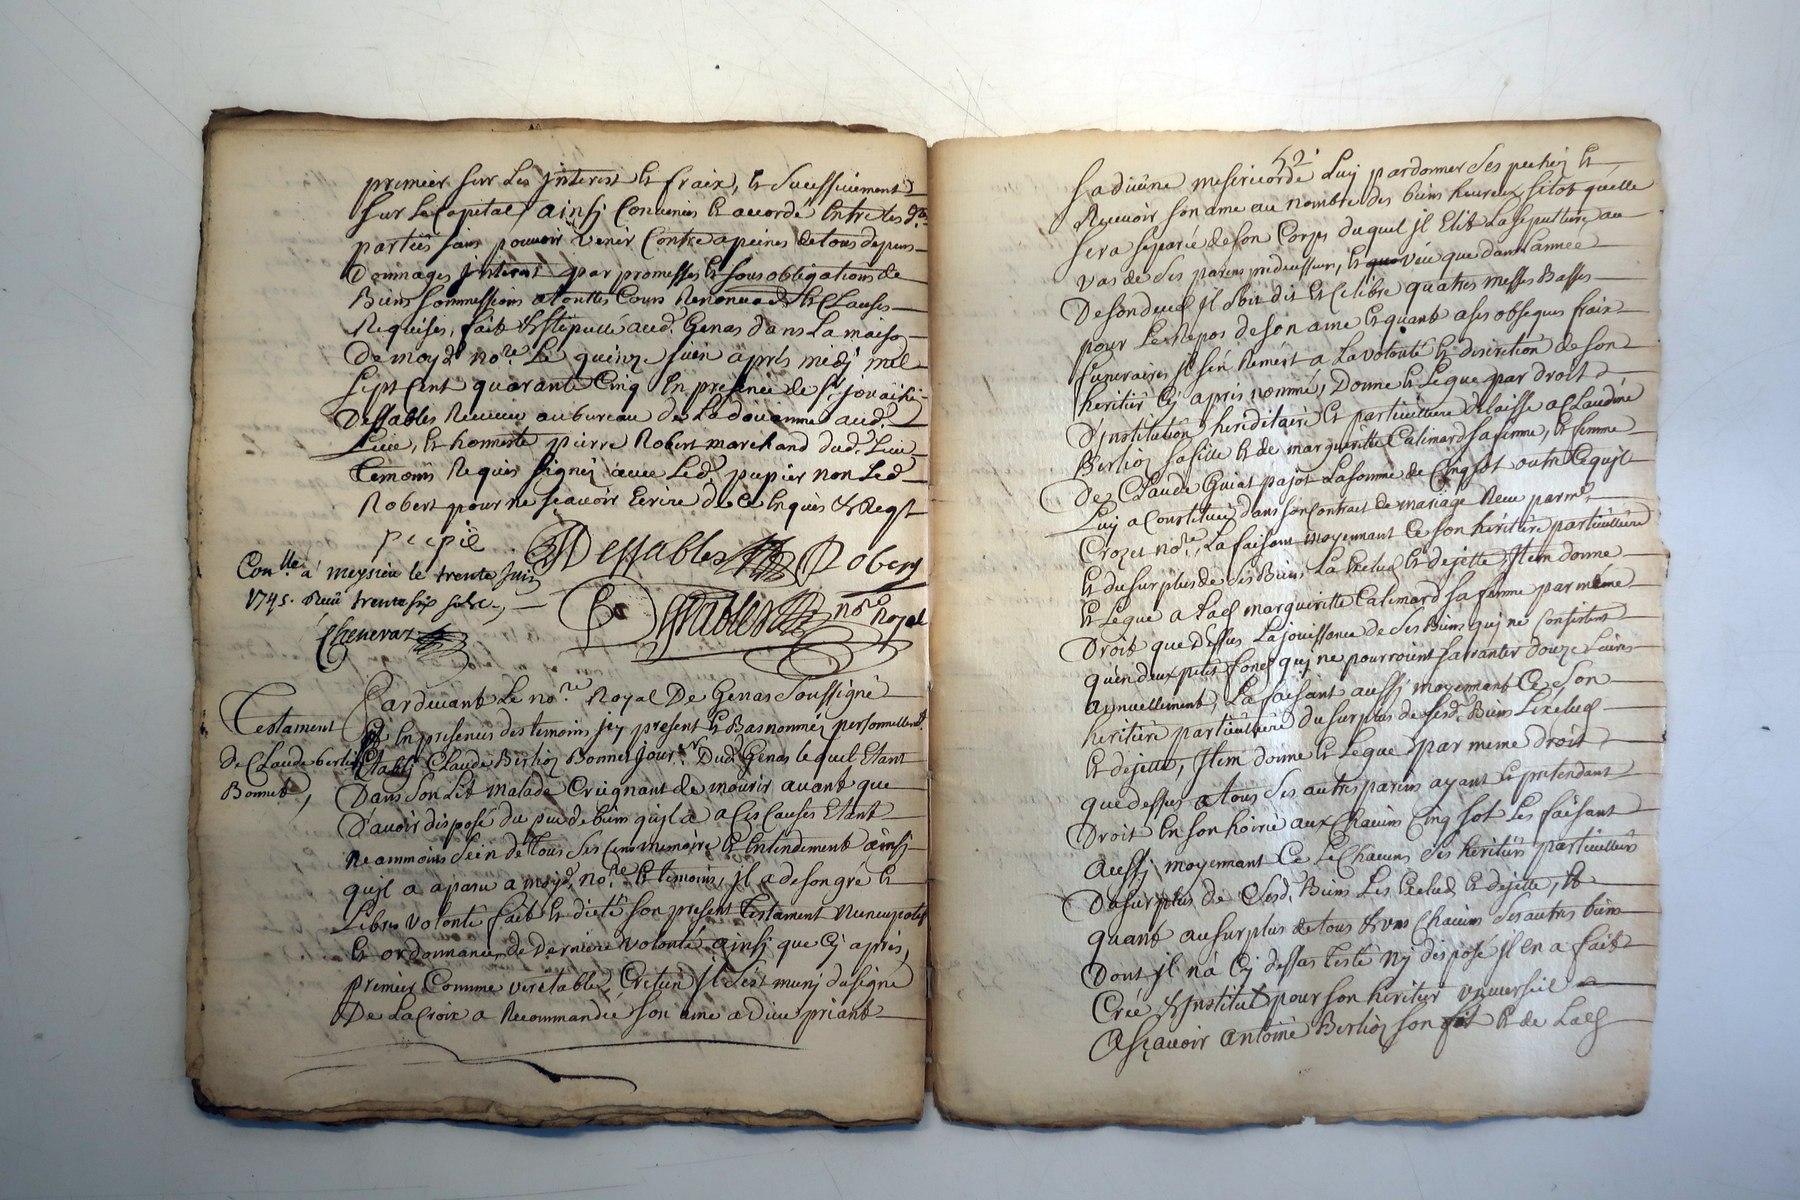 premier sur Les Interest Et fraix, Et Successivement
Sur Le Capital, ainsi Convenü Et accordé Entre les d.
parties sans pouvoir venir Contre a peines de tous depens
Dommages Interest par promesses Et sous obligations de
Biens sommessions a touttes Cours Renonc Et Clauses
Requises, fait Et Stipullé aud. Genas dans La maiso
De moyd no.re Le quinze Juin après midy mil
Sept Cent quarante Cinq En presence de S.r
Dessables Receveur au bureau de La doüanne aud.
Lieu, Et honneste pierre Robert marchand dud. Lieu
temoins Requis signéz avec Led. pupier non Led
Robert pour ne sçavoir Ecrire de Ce Enquis Et Reqt
pupié Dessables Robert
Con.lle a meysieu le trente Juin
1745. Receu trente six sols
Chenevaz
Desables no.re Royal
Testament
De Claude berlioz
Bonnet,
Pardevant Le no.re Royal De Genas Soussigné
Et En presences des temoins jcy present Et Bas nomméz personnellemt
Etably Claude Berlioz Bonnet Jour.er Dud. Genas lequel Etant
Dans Son Lit malade Craignant de mourir avant que
D'avoir disposé du peu de bien qu'jl a a Ces Causes Etant
Neammoins Sein de tous Ses Cens memoire Et Entendement ainsj
qujl a aparu a moyd. no.re Et temoins, jl a de son gré Et
Libre volonté fait Et dicté Son present testament Nuncupatif
Et ordonnance de Derniere volonté ainsi que Cy après,
premier Comme veritable Cretien jl S'est munj du signe
De La Croix a Recommandée Son ame a Dieu priant
52
Sa divine misericorde Luy pardonner Ses pechéz Et
Recevoir Son ame au nombre des bien heureux sitot qu'elle
Sera Separée de son Corps duquel jl Elit La Sepulture au
vas de Ses parens predecesseurs, Et veu que dans L'année
De son decéd jl soit dit Et Celebré quatres messes Basses
pour Le Repos de son ame Et quant a ses obseques fraix
funeraires jl s'en Remest a La volonté Et discretion de son
heritier Cy après nommé, Donne Et Legue par droit
D'institution hereditaire Et particulliere delaisse a Claudine
Berlioz sa fille Et de margueritte Calimard sa femme, Et femme
De Claude Guiat pajot La somme de Cinq sol outre Ce qujl
Luy a Constitué dans Son Contrat de mariage Receu par m.e
Crozet no.re, La faisant moyennant Ce son heritiere particulliere
Et du surplus de Ses Biens La Exclud Et dejette, Jtem donne
Et Legue a Lad. margueritte Calimard sa femme par même
Droit que dessus La jouissance de Ses Biens quj ne Consistent
qu'en deux petit fond quj ne pourroint s'arranter douze Livres
annuellement, La faisant aussj moyennant Ce Son
heritiere particulliere du surplus de sesd. Biens L'exclud
Et dejette, Jtem donne Et Legue par meme droit
que dessus a tous Ses autres parens ayant Et pretendant
Droit En son hoirie aux Chacuns Cinq sol Les faisant
aussj moyennant Ce Le Chacuns Ses heritiers particulliers
Du surplus de Sesd. Biens Les Exclud Et dejette, Et
quant au surplus de tous Et uns Chacuns Ses autres biens
Dont jl n'a Cy dessus testé Ny disposé jl en a fait
Créé Et Institué pour son heritier universel
A sçavoir antoine Berlioz son fils Et de Lad